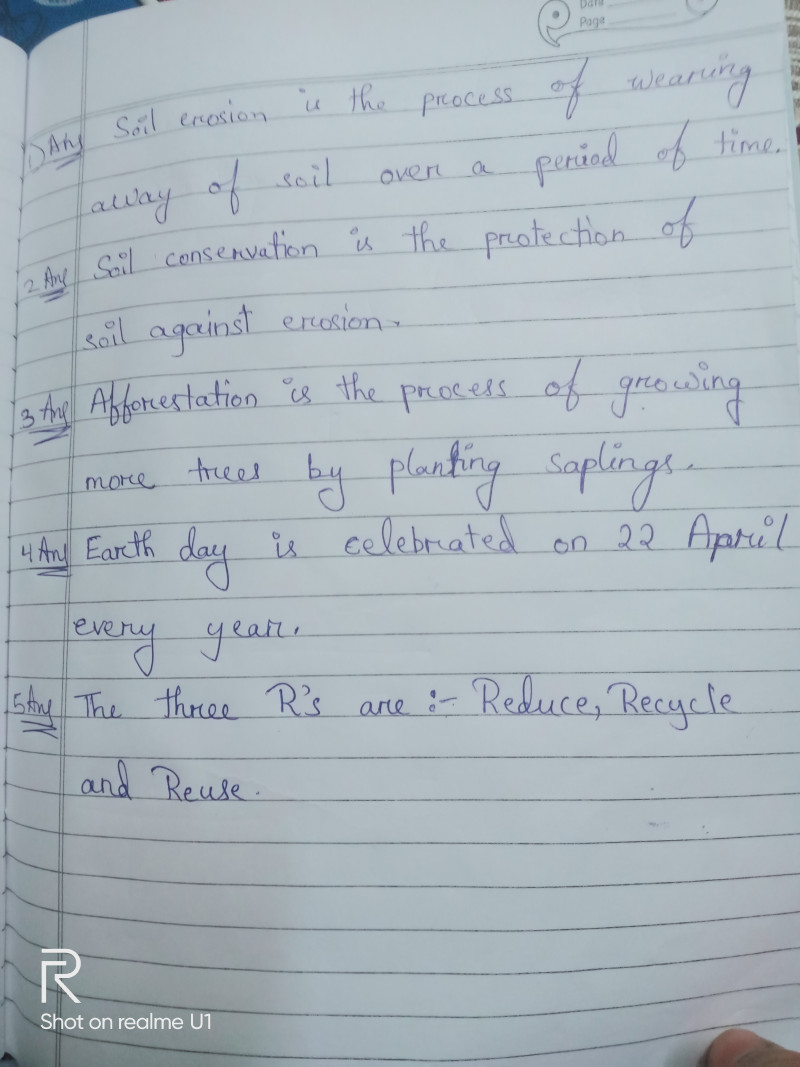 Date
Page
1) Ans Soil erosion is the process of wearing
away of soil over a period of time.
2 Ans Soil conservation is the protection of
soil against erosion.
3 Ans Afforestation is the process of growing
more trees by planting saplings.
4 Ans Earth day is celebrated on 22 April
every year.
5 Ans The three R's are :- Reduce, Recycle
and Reuse.
R
Shot on realme U1